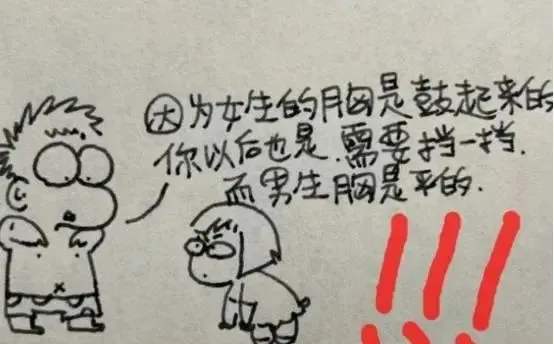 因为女生的胸是鼓起来的
你以后也是.需要挡一挡.
而男生胸是平的.
!!!